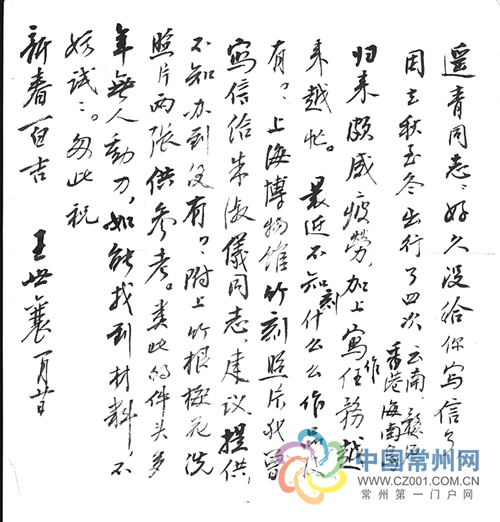 遥青同志:好久没给你写信了
因去秋至冬出行了四次 云南、
香港海南
归来颇感疲勞,加上寫作任務越
来越忙。最近不知刻什么作品没
有?上海博物馆竹刻照片我曾
寫信给朱淑儀同志,建议提供,
不知办到没有?附上竹根花洗
照片两张供参考。类此的件头多
年無人動刀,如能找到材料,不
妨试:。匆此祝
新春百吉
王世襄 一月廿
中国常州网
WWW.CZ001.COM.CN
常州第一门户网